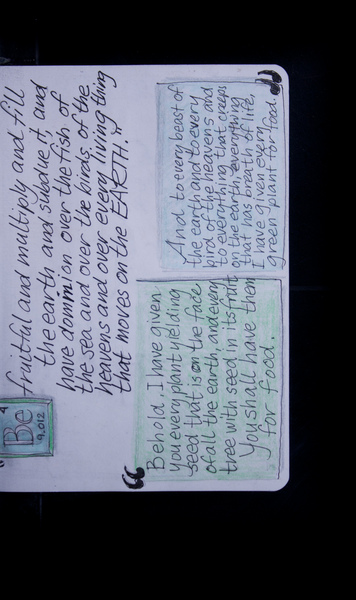 4
Be
9.012
fruitful and multiply and fill
the earth and subdue it, and
have dominion over the fish of
the sea and over the birds of the
heavens and over every living thing
that moves on the EARTH."
"
Behold, I have given
you every plant yielding
seed that is on the face
of all the earth, and every
tree with seed in its fruit.
You shall have them
for food.
And to every beast of
the earth and to every
bird of the heavens and
to everything that creeps
on the earth, everything
that has breath of life,
I have given every
green plant for food.
"